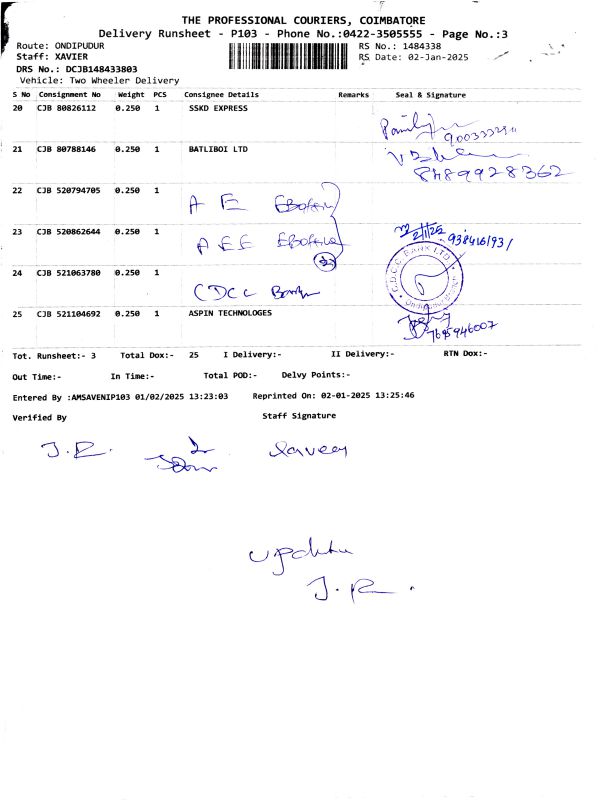 THE PROFESSIONAL COURIERS, COIMBATORE
Delivery Runsheet - P103 - Phone No.:0422-3505555 - Page No.:3
Route: ONDIPUDUR RS No.: 1484338
Staff: XAVIER RS Date: 02-Jan-2025
DRS No.: DCJB148433803
Vehicle: Two Wheeler Delivery
S No Consignment No Weight PCS Consignee Details Remarks Seal & Signature
20 CJB 80826112 0.250 1 SSKD EXPRESS
21 CJB 80788146 0.250 1 BATLIBOI LTD
8489928362
22 CJB 520794705 0.250 1 A E
23 CJB 520862644 0.250 1 A E E
2
24 CJB 521063780 0.250 1 CDCC Bank
C.D.C.C. BANK LTD
25 CJB 521104692 0.250 1 ASPIN TECHNOLOGES
7695946007
Tot. Runsheet:- 3 Total Dox:- 25 I Delivery:- II Delivery:- RTN Dox:-
Out Time:- In Time:- Total POD:- Delvy Points:-
Entered By :AMSAVENIP103 01/02/2025 13:23:03 Reprinted On: 02-01-2025 13:25:46
Verified By Staff Signature
J.R.
update
J.R.